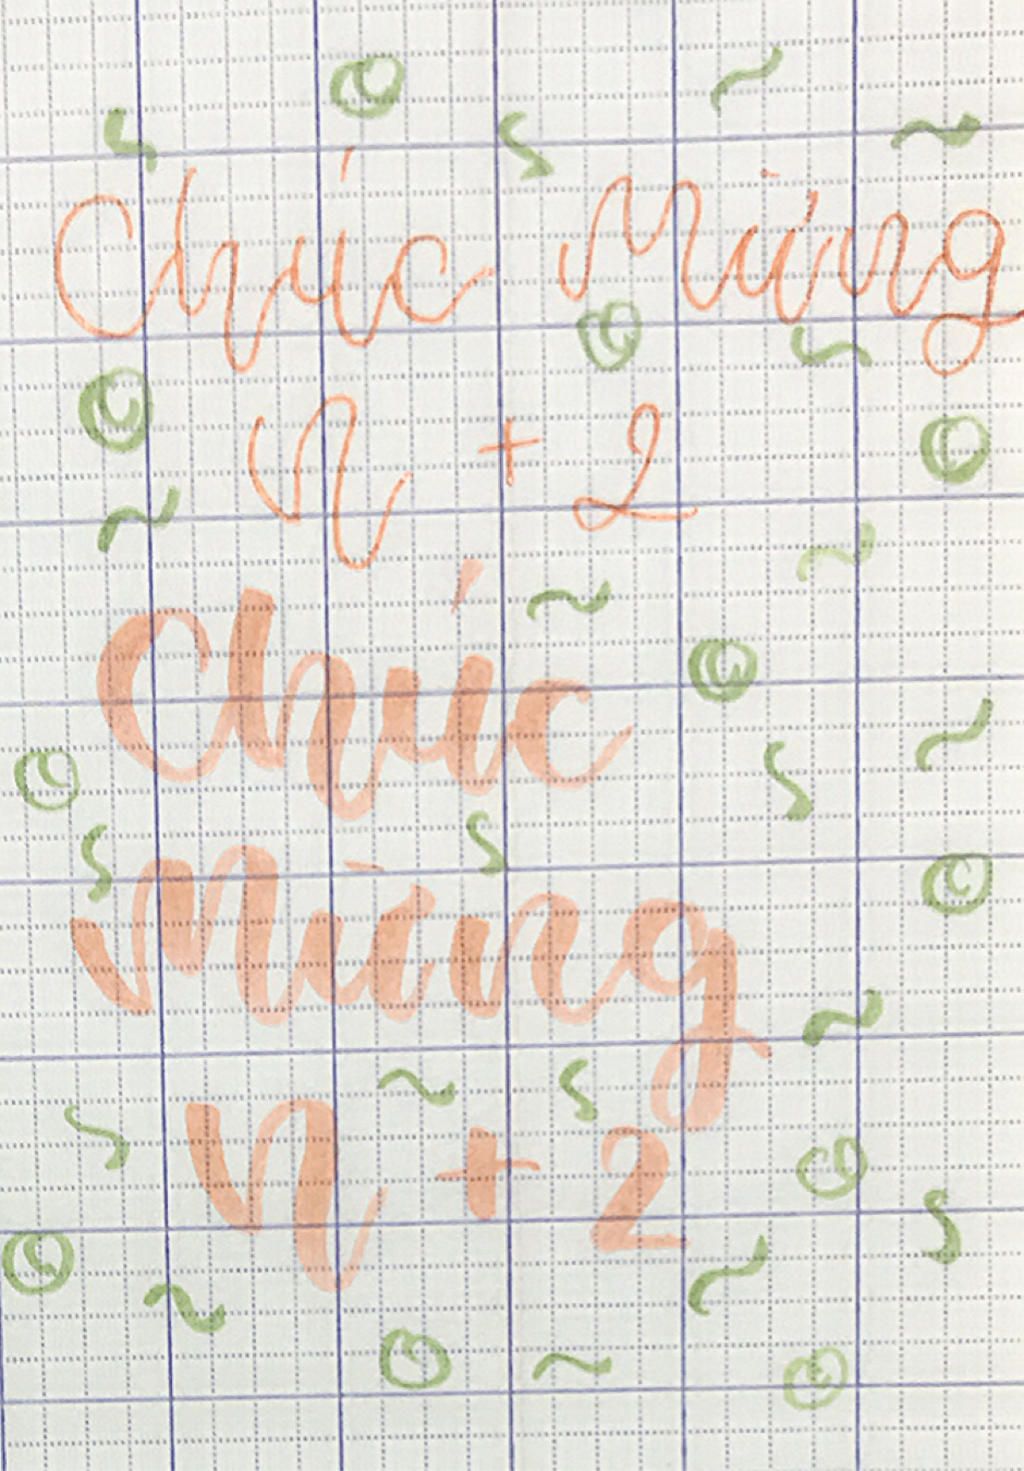 Chúc Mừng
n + 2
Chúc
Mừng
n + 2